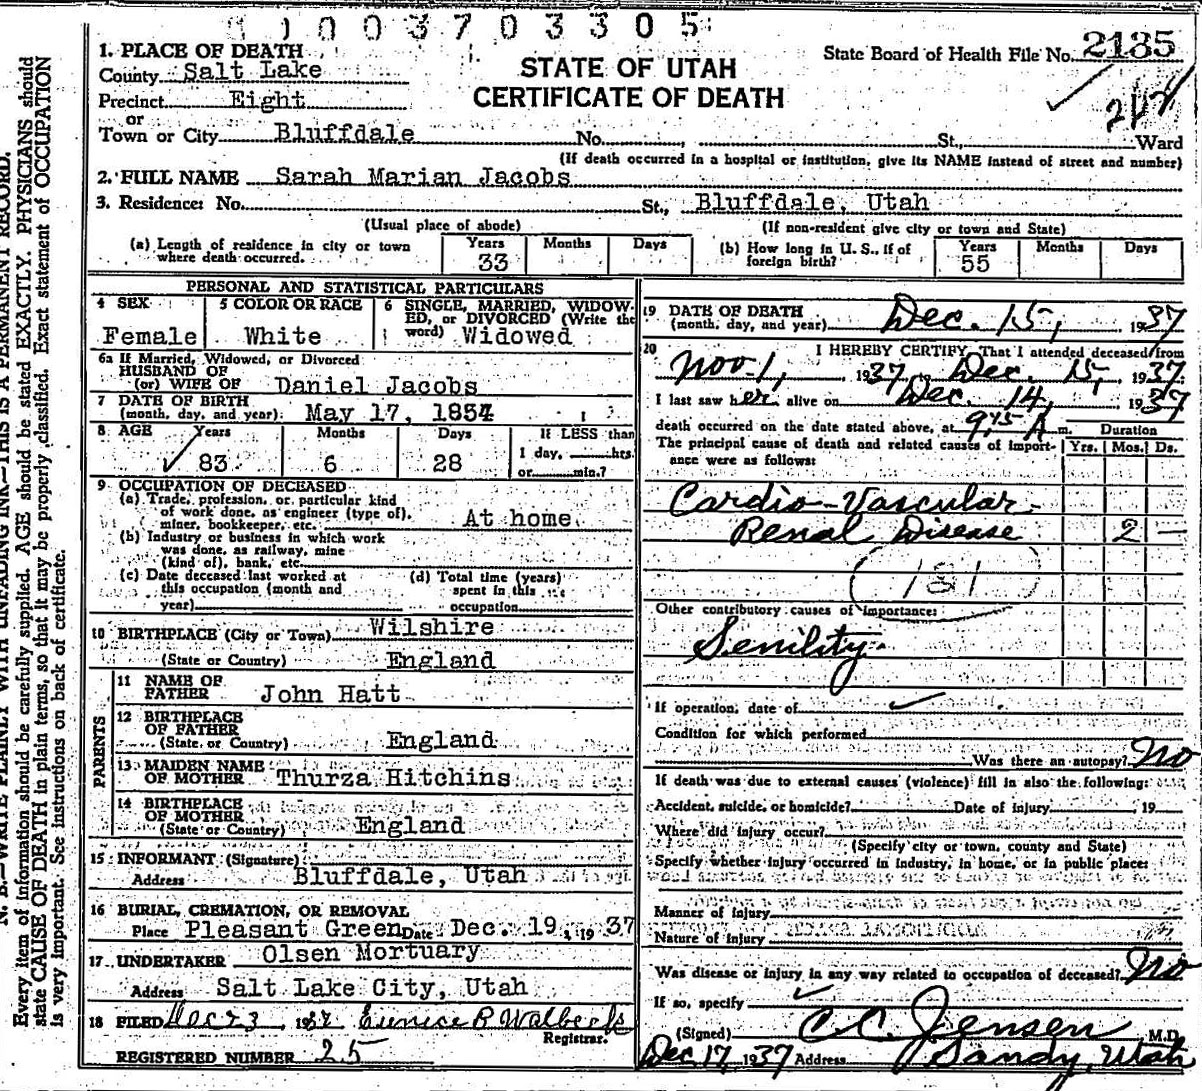 1003703305
1. PLACE OF DEATH
County Salt Lake
Precinct Eight
or
Town or City Bluffdale No. St., Ward
STATE OF UTAH
CERTIFICATE OF DEATH
State Board of Health File No. 2135
(If death occurred in a hospital or institution, give its NAME instead of street and number)
2. FULL NAME Sarah Marian Jacobs
3. Residence: No. St., Bluffdale, Utah
(Usual place of abode) (If non-resident give city or town and State)
(a) Length of residence in city or town where death occurred. Years 33 Months Days
(b) How long in U. S., if of foreign birth? Years 55 Months Days
PERSONAL AND STATISTICAL PARTICULARS
4 SEX Female
5 COLOR OR RACE White
6 SINGLE, MARRIED, WIDOWED, or DIVORCED (Write the word) Widowed
6a If Married, Widowed, or Divorced
HUSBAND OF
(or) WIFE OF Daniel Jacobs
7 DATE OF BIRTH
(month, day, and year) May 17, 1854
8 AGE Years 83 Months 6 Days 28 If LESS than 1 day, hrs. or min.?
9 OCCUPATION OF DECEASED
(a) Trade, profession, or particular kind
of work done, as engineer (type of),
miner, bookkeeper, etc. At home
(b) Industry or business in which work
was done, as railway, mine
(kind of), bank, etc.
(c) Date deceased last worked at
this occupation (month and
year)
(d) Total time (years)
spent in this
occupation
10 BIRTHPLACE (City or Town) Wilshire
(State or Country) England
PARENTS
11 NAME OF
FATHER John Hatt
12 BIRTHPLACE
OF FATHER
(State or Country) England
13 MAIDEN NAME
OF MOTHER Thurza Hitchins
14 BIRTHPLACE
OF MOTHER
(State or Country) England
15 INFORMANT (Signature)
Address Bluffdale, Utah
16 BURIAL, CREMATION, OR REMOVAL
Place Pleasant Green Date Dec. 19, 1937
17 UNDERTAKER Olsen Mortuary
Address Salt Lake City, Utah
18 FILED Dec 23 1937 Eunice P Walbeck
Registrar.
REGISTERED NUMBER 25
19 DATE OF DEATH
(month, day, and year) Dec. 15, 1937
20 I HEREBY CERTIFY, That I attended deceased from
Nov. 1, 1937 to Dec. 15, 1937
I last saw her alive on Dec. 14, 1937
death occurred on the date stated above, at 9:15 A m. Duration
The principal cause of death and related causes of importance were as follows: Yrs. Mos. Ds.
Cardio-Vascular-
Renal Disease 2 —
131
Other contributory causes of importance:
Senility.
If operation, date of
Condition for which performed
Was there an autopsy? No
If death was due to external causes (violence) fill in also the following:
Accident, suicide, or homicide? Date of injury 19
Where did injury occur?
(Specify city or town, county and State)
Specify whether injury occurred in industry, in home, or in public place:
Manner of injury
Nature of injury
Was disease or injury in any way related to occupation of deceased? No
If so, specify
(Signed) C. C. Jensen M.D.
Dec 17 1937 Address Sandy, Utah
N. B.—WRITE PLAINLY WITH UNFADING INK—THIS IS A PERMANENT RECORD.
Every item of information should be carefully supplied. AGE should be stated EXACTLY. PHYSICIANS should
state CAUSE OF DEATH in plain terms, so that it may be properly classified. Exact statement of OCCUPATION
is very important. See instructions on back of certificate.